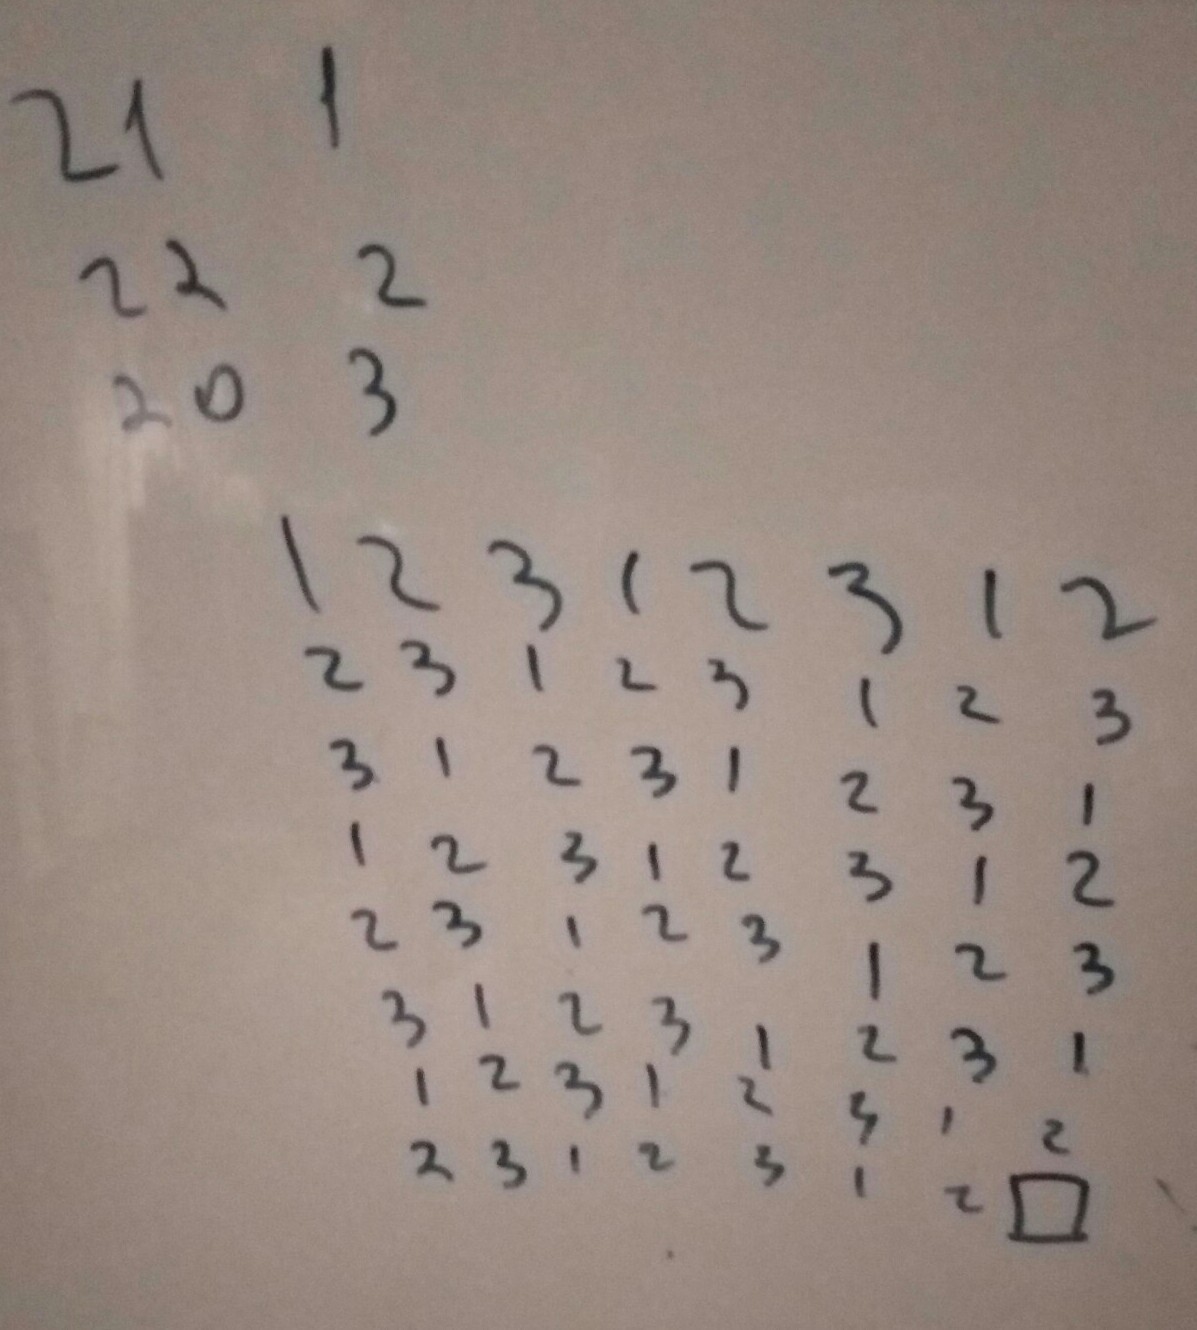 21 1
22 2
20 3
1 2 3 1 2 3 1 2
2 3 1 2 3 1 2 3
3 1 2 3 1 2 3 1
1 2 3 1 2 3 1 2
2 3 1 2 3 1 2 3
3 1 2 3 1 2 3 1
1 2 3 1 2 3 1 2
2 3 1 2 3 1 2